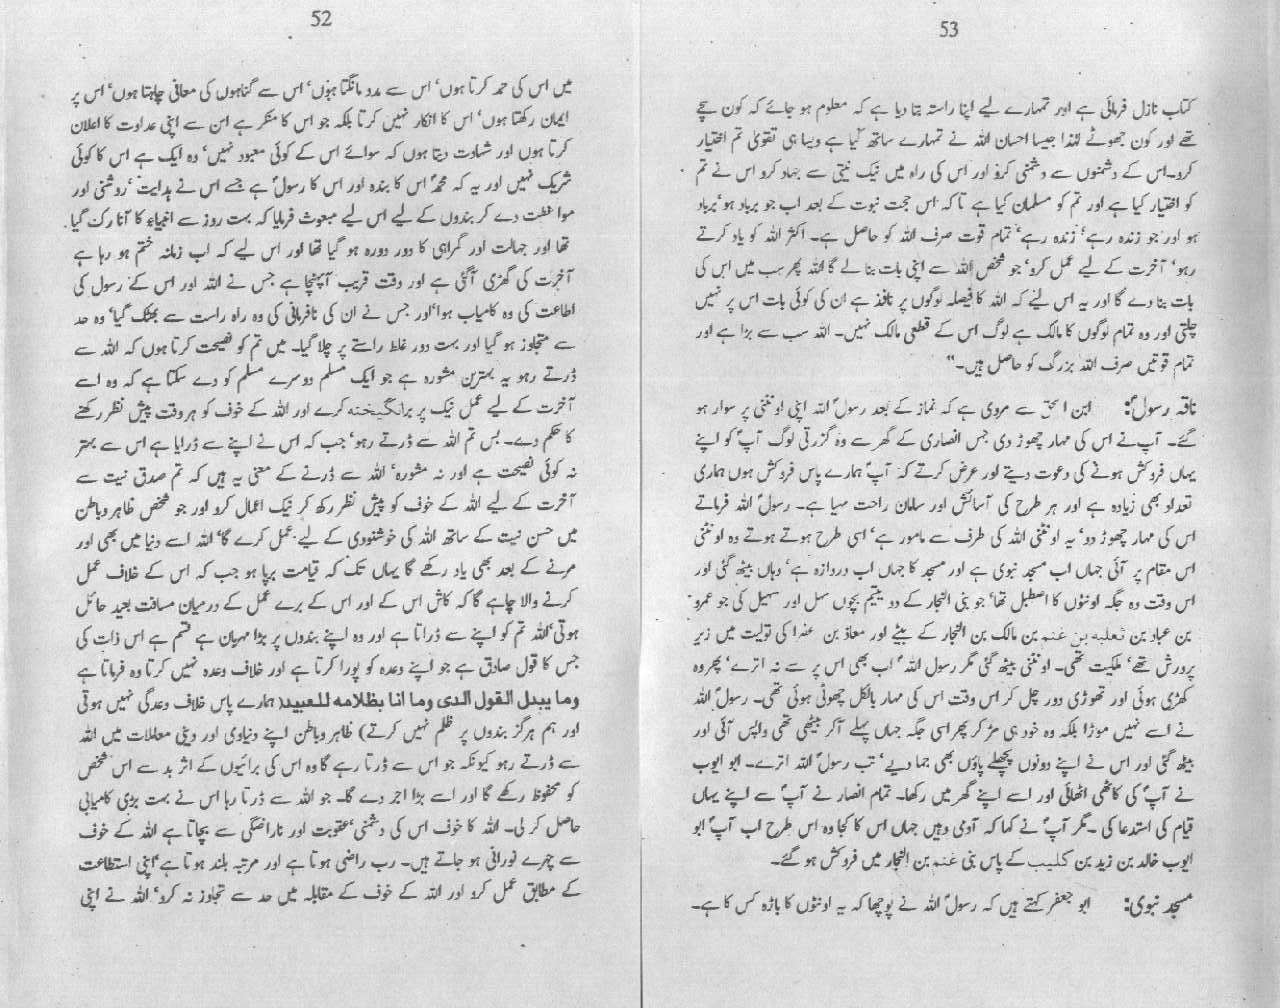 52
میں اس کی حمد کرتا ہوں‘ اس سے مدد مانگتا ہوں‘ اس سے گناہوں کی معافی چاہتا ہوں‘ اس پر
ایمان رکھتا ہوں‘ اس کا انکار نہیں کرتا بلکہ جو اس کا منکر ہے ان سے اپنی عداوت کا اعلان
کرتا ہوں اور شہادت دیتا ہوں کہ سوائے اس کے کوئی معبود نہیں‘ وہ ایک ہے اس کا کوئی
شریک نہیں اور یہ کہ محمدؐ اس کا بندہ اور اس کا رسولؐ ہے جسے اس نے ہدایت ‘روشنی اور
مواعظت دے کر بندوں کے لیے اس لیے مبعوث فرمایا کہ بہت روز سے انبیاءؑ کا آنا رک گیا
تھا اور جہالت اور گمراہی کا دور دورہ ہو گیا تھا اور اس لیے کہ اب زمانہ ختم ہو رہا ہے
آخرت کی گھڑی آگئی ہے اور وقت قریب آپہنچا ہے جس نے اللہ اور اس کے رسول کی
اطاعت کی وہ کامیاب ہوا‘اور جس نے ان کی نافرمانی کی وہ راہ راست سے بھٹک گیا‘ وہ حد
سے متجاوز ہو گیا اور بہت دور غلط راستے پر چلا گیا۔ میں تم کو نصیحت کرتا ہوں کہ اللہ سے
ڈرتے رہو یہ بہترین مشورہ ہے جو ایک مسلم دوسرے مسلم کو دے سکتا ہے کہ وہ اسے
آخرت کے لیے عمل نیک پر برانگیختہ کرے اور اللہ کے خوف کو ہروقت پیش نظر رکھنے
کا حکم دے۔ بس تم اللہ سے ڈرتے رہو‘ جب کہ اس نے اپنے سے ڈرایا ہے اس سے بہتر
نہ کوئی نصیحت ہے اور نہ مشورہ‘ اللہ سے ڈرنے کے معنی یہ ہیں کہ تم صدق نیت سے
آخرت کے لیے اللہ کے خوف کو پیش نظر رکھ کر نیک اعمال کرو اور جو شخص ظاہر وباطن
میں حسن نیت کے ساتھ اللہ کی خوشنودی کے لیے عمل کرے گا‘ اللہ اسے دنیا میں بھی اور
مرنے کے بعد بھی یاد رکھے گا یہاں تک کہ قیامت برپا ہو جب کہ اس کے خلاف عمل
کرنے والا چاہے گا کہ کاش اس کے اور اس کے برے عمل کے درمیان مسافت بعید حائل
ہوتی‘اللہ تم کو اپنے سے ڈراتا ہے اور وہ اپنے بندوں پر بڑا مہربان ہے قسم ہے اس ذات کی
جس کا قول صادق ہے جو اپنے وعدہ کو پورا کرتا ہے اور خلاف وعدہ نہیں کرتا وہ فرماتا ہے
وما یبدل القول الدی وما انا بظلامہ للعبید( ہمارے پاس خلاف وعدگی نہیں ہوتی
اور ہم ہرگز بندوں پر ظلم نہیں کرتے) ظاہر وباطن اپنے دنیاوی اور دینی معاملات میں اللہ
سے ڈرتے رہو کیونکہ جو اس سے ڈرتا رہے گا وہ اس کی برائیوں کے اثر بد سے اس شخص
کو محفوظ رکھے گا اور اسے بڑا اجر دے گا۔ جو اللہ سے ڈرتا رہا اس نے بہت بڑی کامیابی
حاصل کر لی۔ اللہ کا خوف اس کی دشمنی‘عقوبت اور ناراضگی سے بچاتا ہے اللہ کے خوف
سے چہرے نورانی ہو جاتے ہیں۔ رب راضی ہوتا ہے اور مرتبہ بلند ہوتا ہے‘اپنی استطاعت
کے مطابق عمل کرو اور اللہ کے خوف کے مقابلہ میں حد سے تجاوز نہ کرو‘ اللہ نے اپنی
53
کتاب نازل فرمائی ہے اور تمہارے لیے اپنا راستہ بتا دیا ہے کہ معلوم ہو جائے کہ کون سچے
تھے اور کون جھوٹے لہٰذا جیسا احسان اللہ نے تمہارے ساتھ کیا ہے ویسا ہی تقویٰ تم اختیار
کرو۔اس کے دشمنوں سے دشمنی کرو اور اس کی راہ میں نیک نیتی سے جہاد کرو اس نے تم
کو اختیار کیا ہے اور تم کو مسلمان کیا ہے تاکہ اس حجت نبوت کے بعد اب جو برباد ہو‘برباد
ہو اور جو زندہ رہے‘ زندہ رہے‘ تمام قوت صرف اللہ کو حاصل ہے۔ اکثر اللہ کو یاد کرتے
رہو‘ آخرت کے لیے عمل کرو‘ جو شخص اللہ سے اپنی بات بنا لے گا اللہ پھر سب میں اس کی
بات بنا دے گا اور یہ اس لیئے کہ اللہ کا فیصلہ لوگوں پر نافذ ہے ان کی کوئی بات اس پر نہیں
چلتی اور وہ تمام لوگوں کا مالک ہے لوگ اس کے قطعی مالک نہیں۔ اللہ سب سے بڑا ہے اور
تمام قوتیں صرف اللہ بزرگ کو حاصل ہیں۔"
ناقہ رسولؐ: ابن الحق سے مروی ہے کہ نماز کے بعد رسولؐ اللہ اپنی اونٹنی پر سوار ہو
گئے۔ آپ نے اس کی مہار چھوڑ دی جس انصاری کے گھر سے وہ گزرتی لوگ آپؐ کو اپنے
یہاں فروکش ہونے کی دعوت دیتے اور عرض کرتے کہ آپؐ ہمارے پاس فروکش ہوں ہماری
تعداد بھی زیادہ ہے اور ہر طرح کی آسائش اور سامان راحت مہیا ہے۔ رسولؐ اللہ فرماتے
اس کی مہار چھوڑ دو‘ یہ اونٹنی اللہ کی طرف سے مامور ہے‘ اسی طرح ہوتے ہوتے وہ اونٹنی
اس مقام پر آئی جہاں اب مسجد نبوی ہے اور مسجد کا جہاں اب دروازہ ہے‘ وہاں بیٹھ گئی اور
اس وقت وہ جگہ اونٹوں کا اصطبل تھا‘ جو بنی النجار کے دو یتیم بچوں سہل اور سہیل کی جو عمرو
بن عباد بن ثعلبہ بن غنم بن مالک بن النجار کے بیٹے اور معاذ بن عفرا کی تولیت میں زیر
پرورش تھے‘ ملکیت تھی۔ اونٹنی بیٹھ گئی مگر رسول اللہؐ اب بھی اس پر سے نہ اترے‘ پھر وہ
کھڑی ہوئی اور تھوڑی دور چل کر اس وقت اس کی مہار بالکل چھوٹی ہوئی تھی۔ رسولؐ اللہ
نے اسے نہیں موڑا بلکہ وہ خود ہی مڑ کر پھر اسی جگہ جہاں پہلے آکر بیٹھی تھی واپس آئی اور
بیٹھ گئی اور اس نے اپنے دونوں پچھلے پاؤں بھی جما دیے‘ تب رسولؐ اللہ اترے۔ ابو ایوب
نے آپؐ کی کاٹھی اٹھائی اور اسے اپنے گھر میں رکھا۔ تمام انصار نے آپؐ سے اپنے یہاں
قیام کی استدعا کی۔مگر آپؐ نے کہا کہ آدمی وہیں جہاں اس کا کجاوہ اس طرح اب آپؐ ابو
ایوب خالد بن زید بن کلیب کے پاس بنی غنم بن النجار میں فروکش ہو گئے۔
مسجد نبوی: ابو جعفر کہتے ہیں کہ رسولؐ اللہ نے پوچھا کہ یہ اونٹوں کا باڑہ کس کا ہے۔